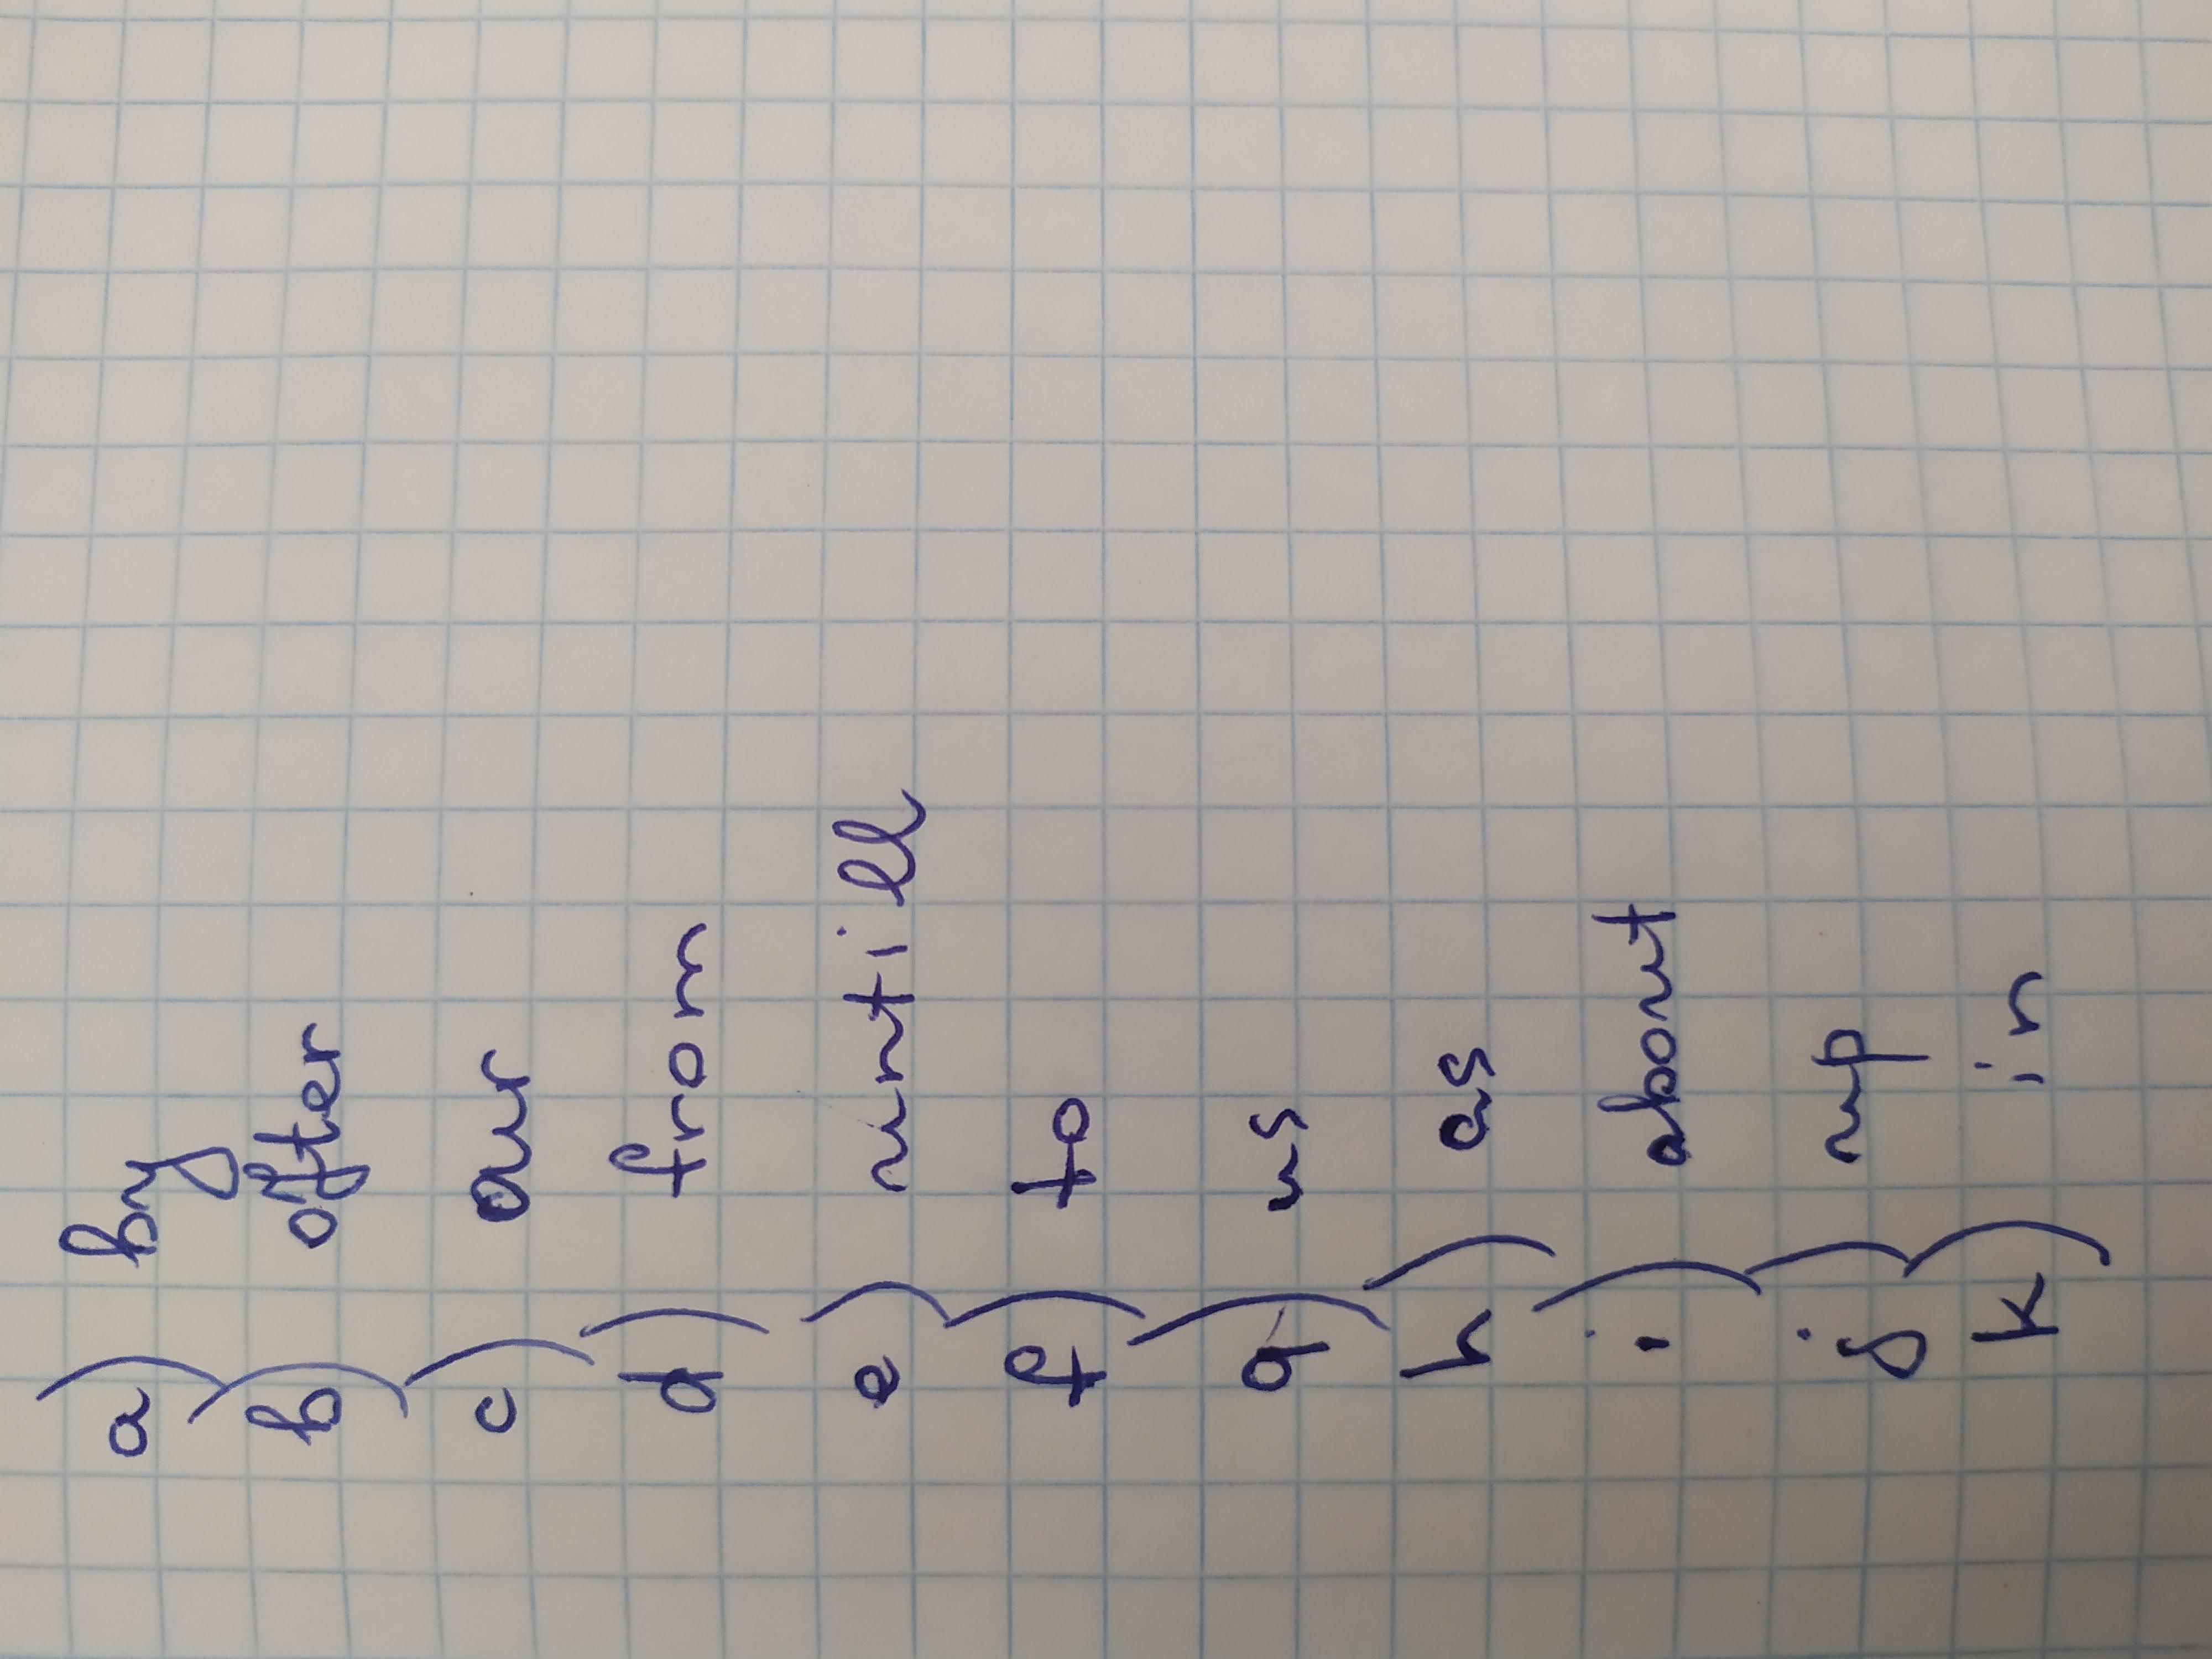 a) by
b) after
c) our
d) from
e) untill
f) to
g) us
h) as
i) about
j) up
k) in